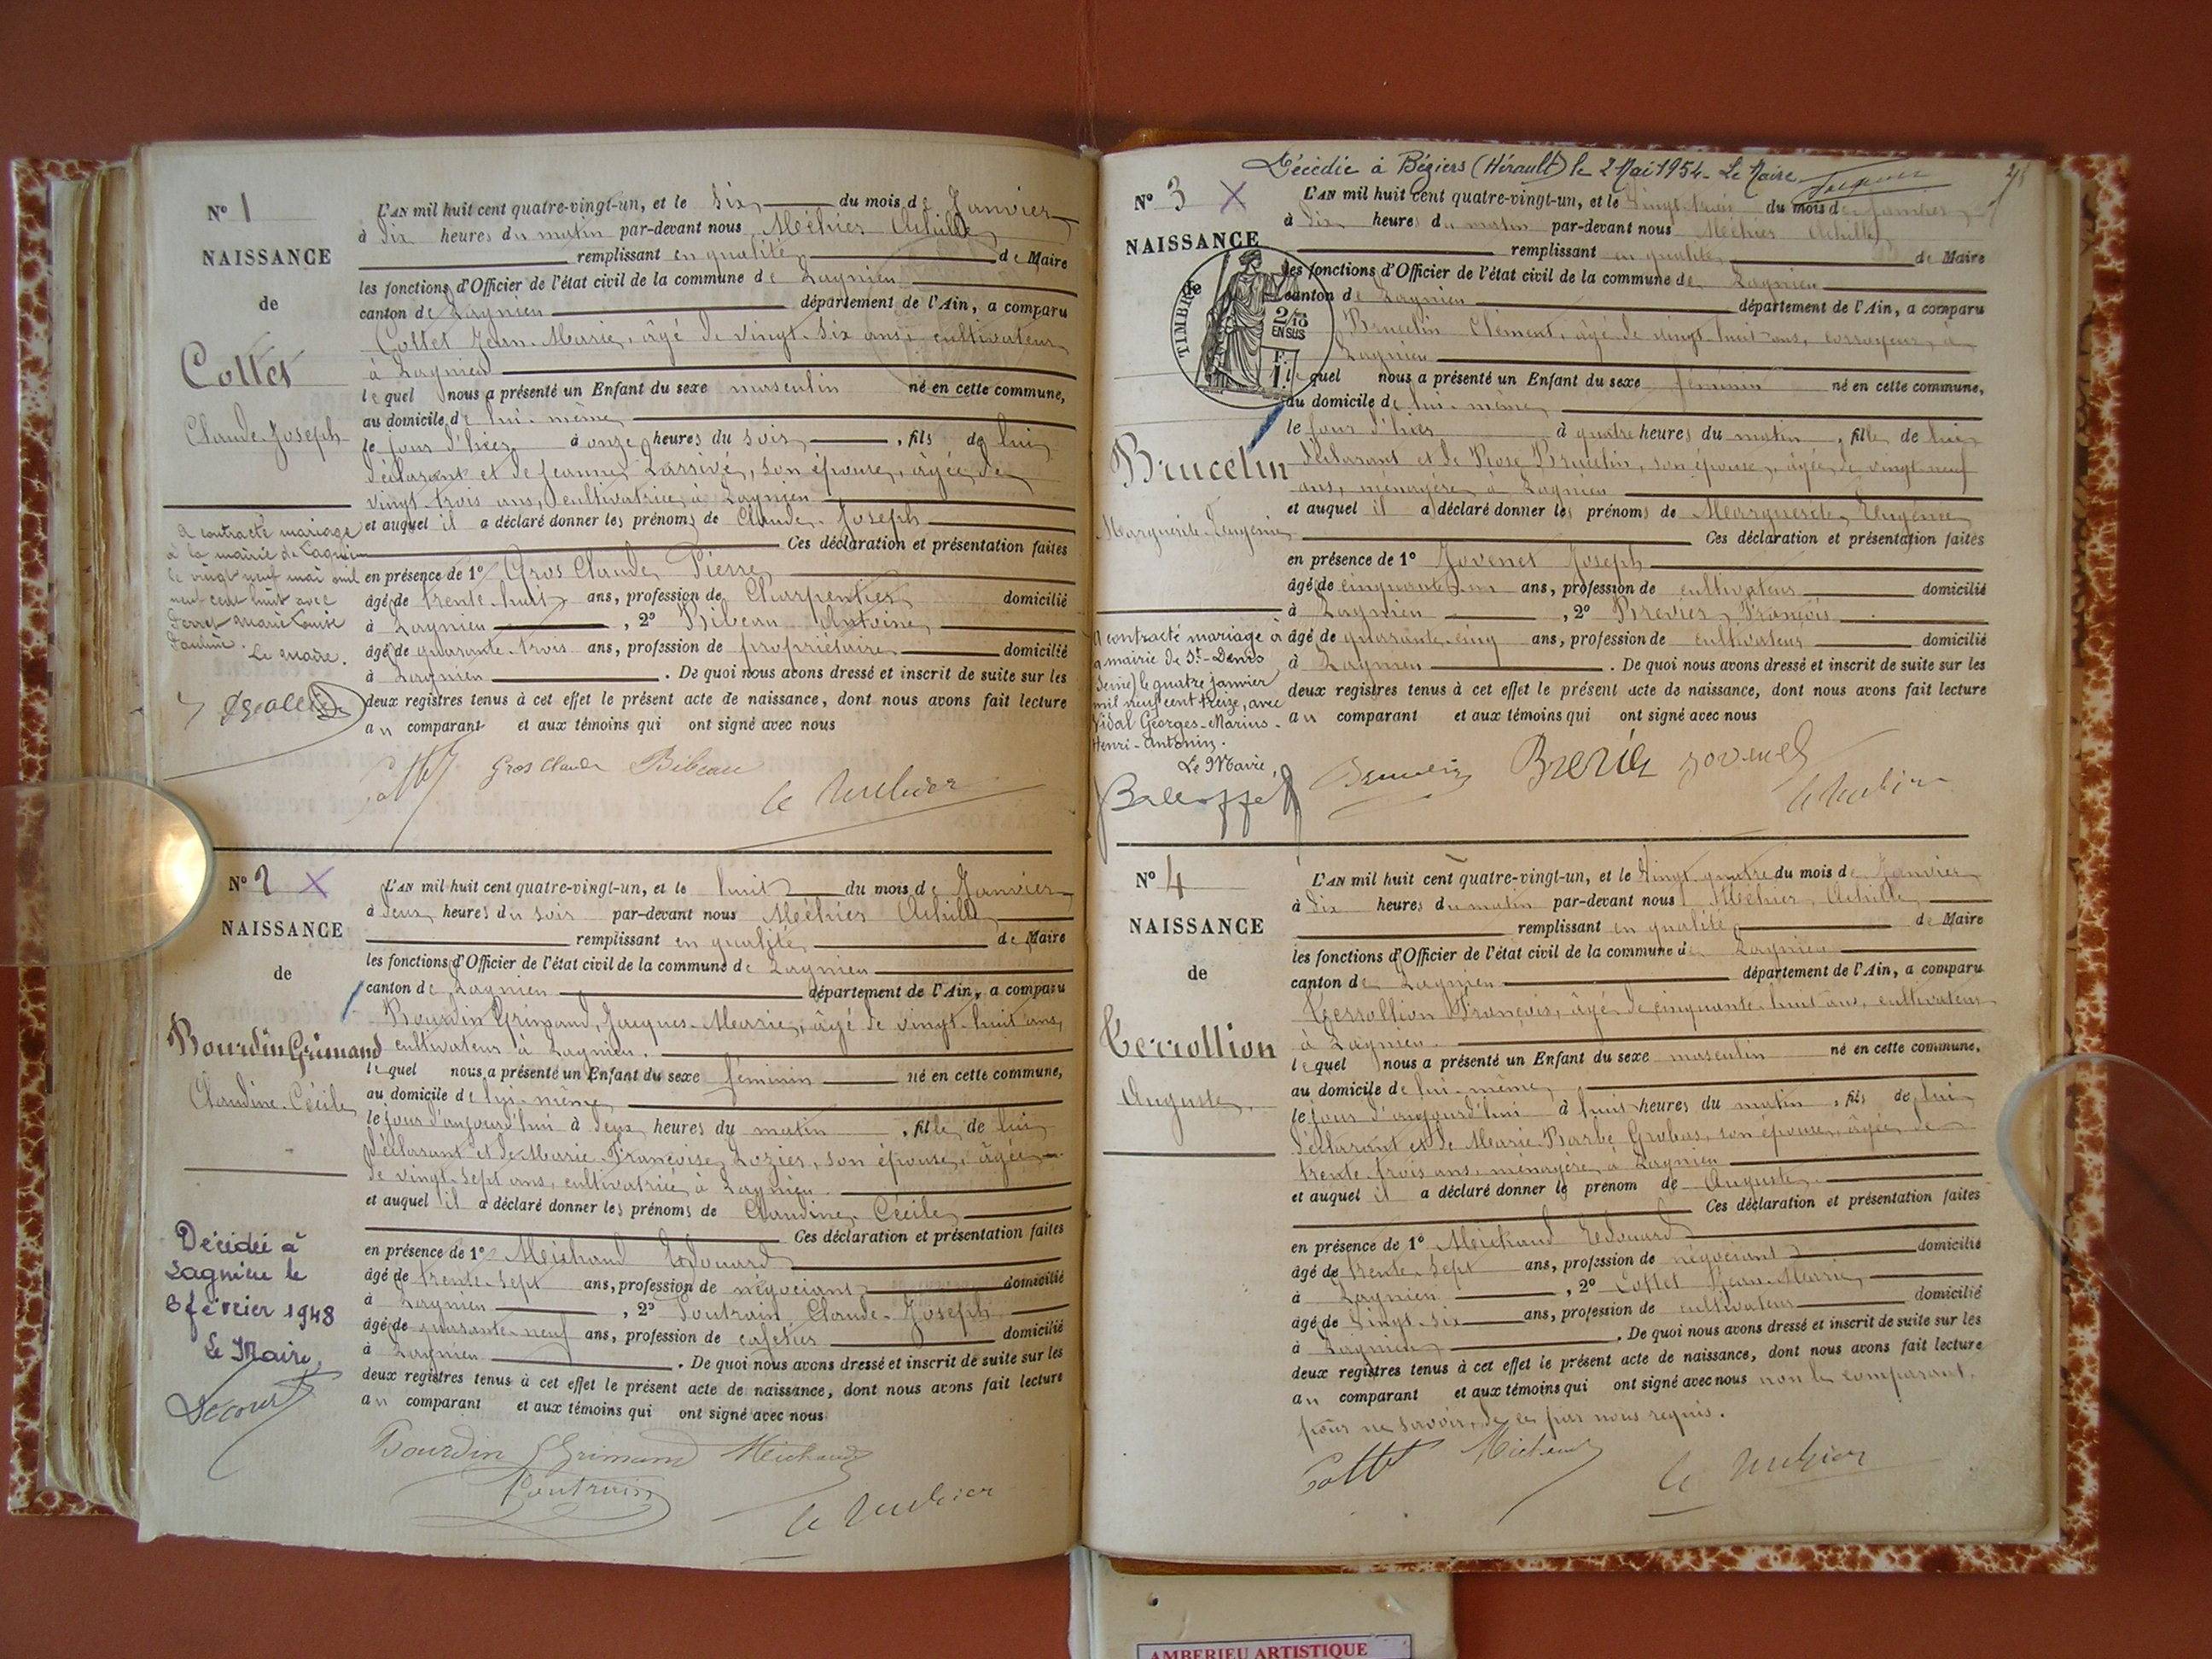 N° 1
NAISSANCE
de
Collet
Claude-Joseph
a contracté mariage
à la mairie de Lagnieu
le vingt neuf mai mil
neuf cent huit avec
Marie Louise
Le Maire.
L'AN mil huit cent quatre-vingt-un, et le six du mois de Janvier
à dix heures du matin par-devant nous Méhier Achille
remplissant en qualité de Maire
les fonctions d'Officier de l'état civil de la commune de Lagnieu
canton de Lagnieu département de l'Ain, a comparu
Collet Jean-Marie, âgé de vingt-six ans, cultivateur
à Lagnieu
lequel nous a présenté un Enfant du sexe masculin né en cette commune,
au domicile de lui-même
le jour d'hier à onze heures du soir, fils de lui
déclarant et de Jeanne Larrivé, son épouse, âgée de
vingt-trois ans, cultivatrice à Lagnieu
et auquel il a déclaré donner les prénoms de Claude-Joseph
Ces déclaration et présentation faites
en présence de 1° Gros Claude Pierre
âgé de trente-huit ans, profession de Charpentier domicilié
à Lagnieu, 2° Bibeau Antoine
âgé de quarante-trois ans, profession de propriétaire domicilié
à Lagnieu. De quoi nous avons dressé et inscrit de suite sur les
deux registres tenus à cet effet le présent acte de naissance, dont nous avons fait lecture
au comparant et aux témoins qui ont signé avec nous
Gros Claude Bibeau
N° 2 X
NAISSANCE
de
Bourdin Grimand
Claudine-Cécile
Décédée à
Lagnieu le
6 février 1948
Le Maire,
L'AN mil huit cent quatre-vingt-un, et le huit du mois de Janvier
à deux heures du soir par-devant nous Méhier Achille
remplissant en qualité de Maire
les fonctions d'Officier de l'état civil de la commune de Lagnieu
canton de Lagnieu département de l'Ain, a comparu
Bourdin Grimand, Jacques-Marie, âgé de vingt-huit ans,
cultivateur à Lagnieu.
lequel nous a présenté un Enfant du sexe féminin né en cette commune,
au domicile de lui-même
le jour d'aujourd'hui à deux heures du matin, fille de lui
déclarant et de Marie-Françoise Lozier, son épouse, âgée
de vingt-sept ans, cultivatrice à Lagnieu.
et auquel il a déclaré donner les prénoms de Claudine Cécile
Ces déclaration et présentation faites
en présence de 1° Michaud Edouard
âgé de trente-sept ans, profession de négociant domicilié
à Lagnieu, 2° Claude-Joseph
âgé de quarante-neuf ans, profession de cafetier domicilié
à Lagnieu. De quoi nous avons dressé et inscrit de suite sur les
deux registres tenus à cet effet le présent acte de naissance, dont nous avons fait lecture
au comparant et aux témoins qui ont signé avec nous
Bourdin Grimand Michaud
Décédée à Béziers (Hérault) le 2 Mai 1954. Le Maire
N° 3 X
NAISSANCE
de
TIMBRE
2/10
EN SUS
Brucelin
Marguerite-Eugénie
A contracté mariage à
la mairie de St-Denis
(Seine) le quatre janvier
mil neuf cent treize, avec
Vidal Georges-Marius-
Henri-Antonin.
Le Maire,
L'AN mil huit cent quatre-vingt-un, et le vingt-trois du mois de Janvier
à dix heures du matin par-devant nous Méhier Achille
remplissant en qualité de Maire
les fonctions d'Officier de l'état civil de la commune de Lagnieu
canton de Lagnieu département de l'Ain, a comparu
Brucelin Clément, âgé de vingt-huit ans, corroyeur, à
Lagnieu
lequel nous a présenté un Enfant du sexe féminin né en cette commune,
au domicile de lui-même
le jour d'hier à quatre heures du matin, fille de lui
déclarant et de Rose Brucelin, son épouse, âgée de vingt-neuf
ans, ménagère à Lagnieu
et auquel il a déclaré donner les prénoms de Marguerite Eugénie
Ces déclaration et présentation faites
en présence de 1° Jovenet Joseph
âgé de cinquante-un ans, profession de cultivateur domicilié
à Lagnieu, 2° François
âgé de quarante-cinq ans, profession de cultivateur domicilié
à Lagnieu. De quoi nous avons dressé et inscrit de suite sur les
deux registres tenus à cet effet le présent acte de naissance, dont nous avons fait lecture
au comparant et aux témoins qui ont signé avec nous
N° 4
NAISSANCE
de
Terrollion
Auguste
L'AN mil huit cent quatre-vingt-un, et le vingt-quatre du mois de Janvier
à dix heures du matin par-devant nous Méhier Achille
remplissant en qualité de Maire
les fonctions d'Officier de l'état civil de la commune de Lagnieu
canton de Lagnieu département de l'Ain, a comparu
Terrollion François, âgé de cinquante-huit ans, cultivateur
à Lagnieu.
lequel nous a présenté un Enfant du sexe masculin né en cette commune,
au domicile de lui-même
le jour d'aujourd'hui à huit heures du matin, fils de lui
déclarant et de Marie-Barbe Grobas, son épouse, âgée de
trente-trois ans, ménagère à Lagnieu
et auquel il a déclaré donner le prénom de Auguste
Ces déclaration et présentation faites
en présence de 1° Michaud Edouard
âgé de trente-sept ans, profession de négociant domicilié
à Lagnieu, 2° Collet Jean-Marie
âgé de vingt-six ans, profession de cultivateur domicilié
à Lagnieu. De quoi nous avons dressé et inscrit de suite sur les
deux registres tenus à cet effet le présent acte de naissance, dont nous avons fait lecture
au comparant et aux témoins qui ont signé avec nous non le comparant,
pour ne savoir, de ce par nous requis.
AMBERIEU ARTISTIQUE